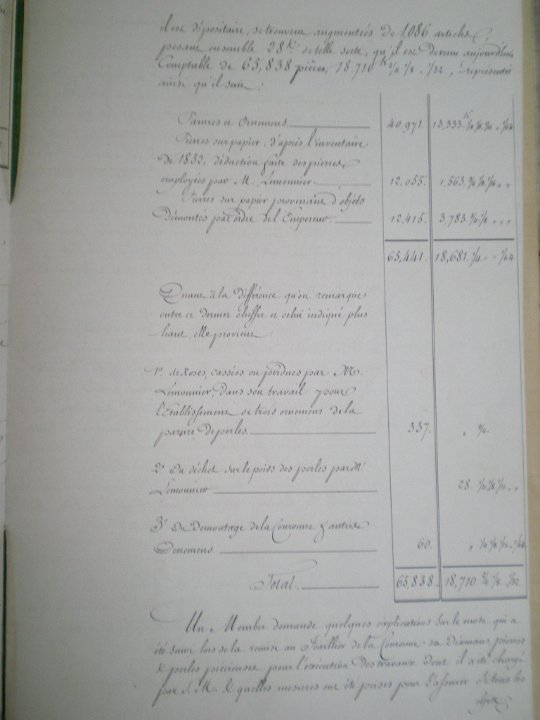 il est dépositaire, se trouvent augmentés de 1,086 articles
pesant ensemble 28 k de telle sorte, qu'il est devenu aujourd'hui
Comptable de 65,838 pièces, 18,710 k 1/32, représentées
ainsi qu'il suit :
Parures et Ornemens 40,971. 13,333 k 1/64
Pierres sur papier, d'après l'inventaire
de 1832, déduction faite des pierres
employées par M. Lemonnier 12.055. 1,563.
Pierres sur papier provenant d'objets
démontés par ordre de l'Empereur 12,415. 3,783.
65,441. 18,681. 1/64
Quant à la différence qu'on remarque
entre ce dernier chiffre et celui indiqué plus
haut, elle provient :
1° de Roses, cassées ou perdues par M.
Lemonnier, dans son travail pour
l'établissement de trois ornemens de la
parure de perles 337.
2° Du déchet sur le poids des perles par M
Lemonnier 28.
3° Du démontage de la Couronne & autres
Ornemens 60. 1/64
Total 65,838. 18,710 1/32
Un Membre demande quelques explications sur le mode qui a
été suivi lors de la remise au Joaillier de la Couronne des Diamans, pierres
& perles précieuses pour l'exécution des travaux dont il a été chargé
par S. M. & quelles mesures ont été prises pour s'assurer de tous les
objets